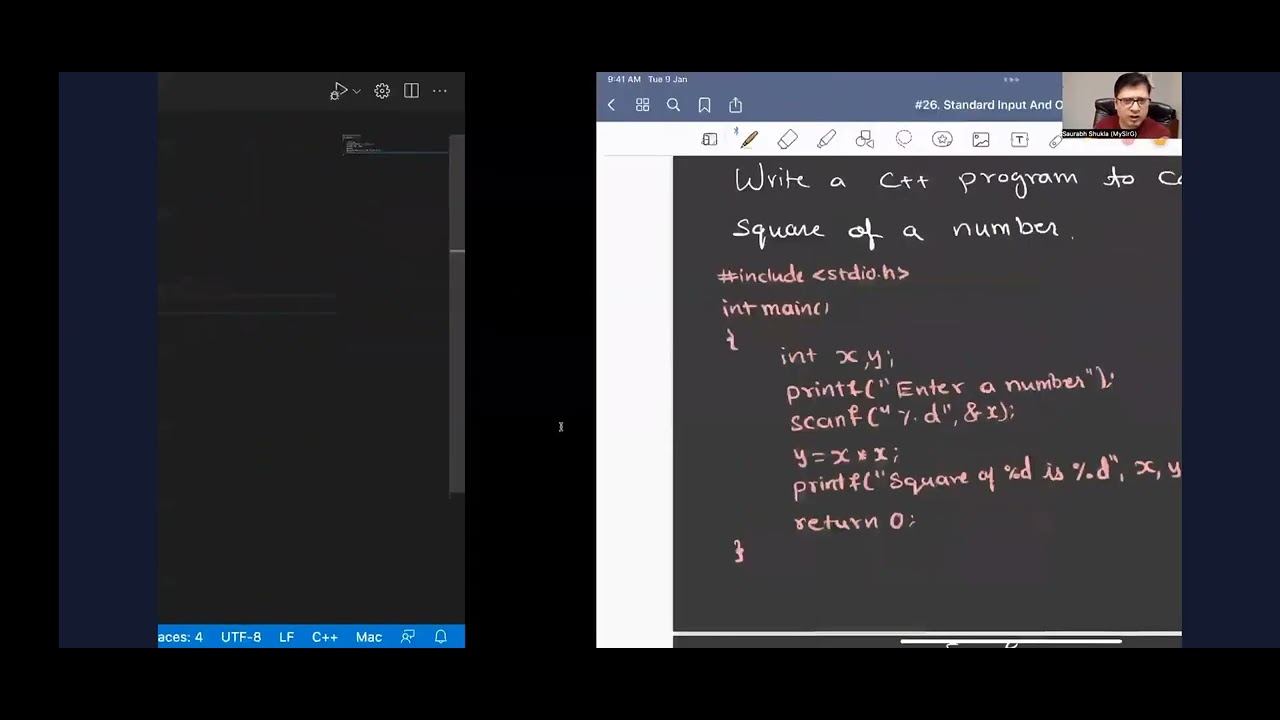 9:41 AM Tue 9 Jan
#26. Standard Input And O
Saurabh Shukla (MySirG)
Write a C++ program to
square of a number.
#include <stdio.h>
int main()
{
int x,y;
printf("Enter a number");
scanf("%d", &x);
y = x * x;
printf("Square of %d is %d", x, y
return 0;
}
aces: 4 UTF-8 LF C++ Mac